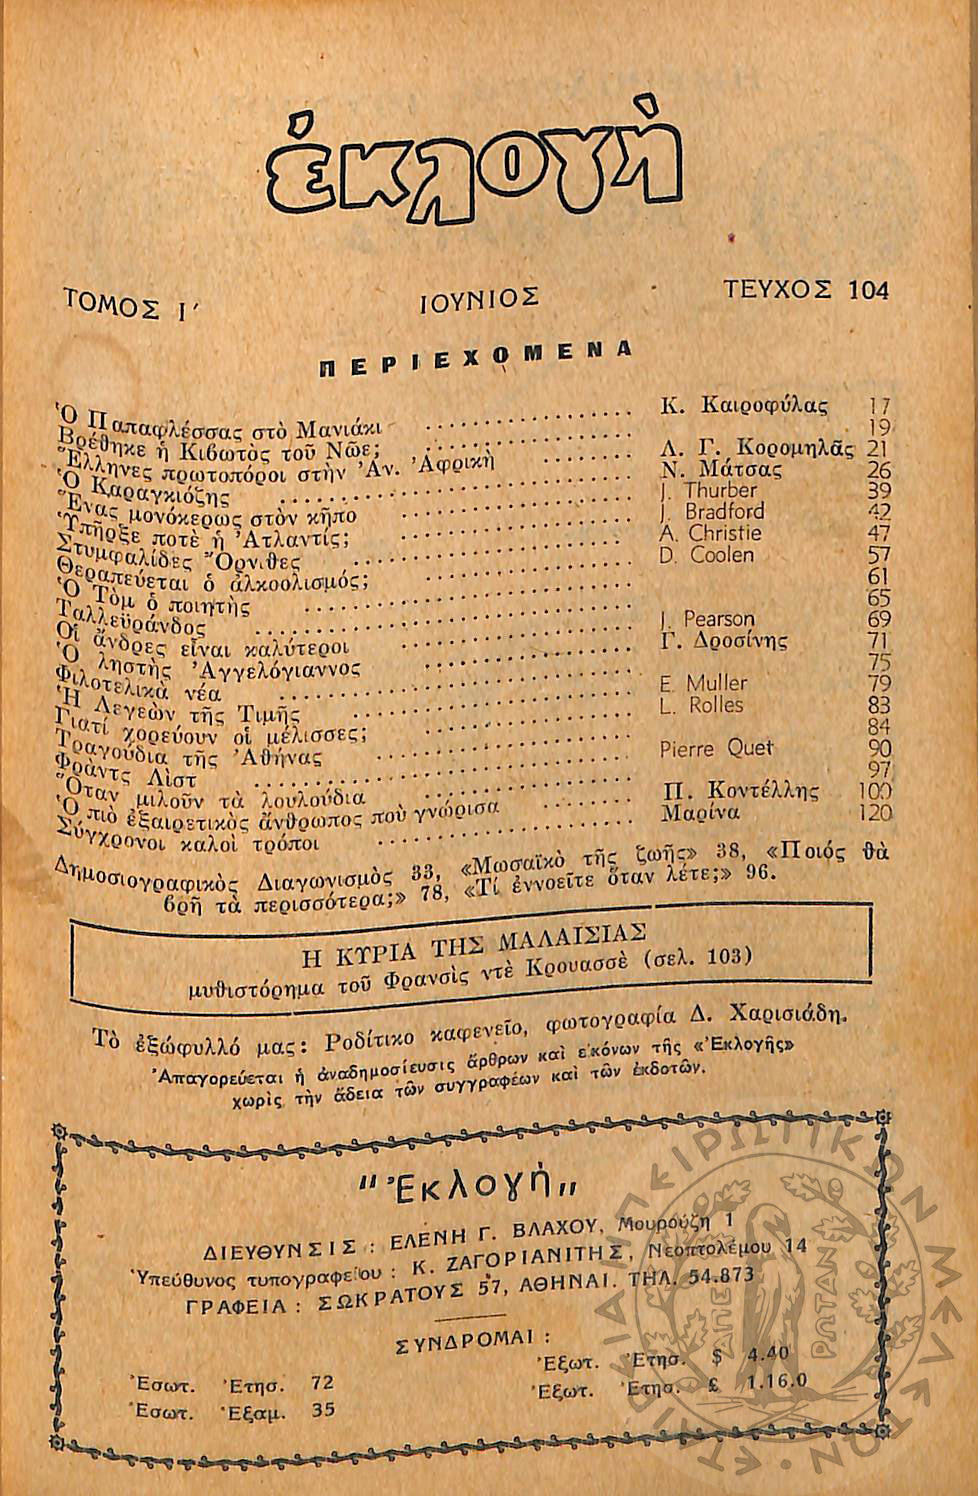 ἐκλογή
ΤΟΜΟΣ Ι΄ ΙΟΥΝΙΟΣ ΤΕΥΧΟΣ 104
ΠΕΡΙΕΧΟΜΕΝΑ
Ὁ Παπαφλέσσας στὸ Μανιάκι .......... Κ. Καιροφύλας 17
Βρέθηκε ἡ Κιβωτὸς τοῦ Νῶε; .......... 19
Ἕλληνες πρωτοπόροι στὴν Ἀν. Ἀφρικὴ .......... Λ. Γ. Κορομηλᾶς 21
Ὁ Καραγκιόζης .......... Ν. Μάτσας 26
Ἕνας μονόκερως στὸν κῆπο .......... J. Thurber 39
Ὑπῆρξε ποτὲ ἡ Ἀτλαντίς; .......... J. Bradford 42
Στυμφαλίδες Ὄρνιθες .......... A. Christie 47
Θεραπεύεται ὁ ἀλκοολισμός; .......... D. Coolen 57
Ὁ Τὸμ ὁ ποιητὴς .......... 61
Ταλλεϋράνδος .......... 65
Οἱ ἄνδρες εἶναι καλύτεροι .......... J. Pearson 69
Ὁ ληστὴς Ἀγγελόγιαννος .......... Γ. Δροσίνης 71
Φιλοτελικὰ νέα .......... 75
Ἡ Λεγεὼν τῆς Τιμῆς .......... E. Muller 79
Γιατί χορεύουν οἱ μέλισσες; .......... L. Rolles 83
Τραγούδια τῆς Ἀθήνας .......... 84
Φρὰντς Λὶστ .......... Pierre Quet 90
Ὅταν μιλοῦν τὰ λουλούδια .......... 97
Ὁ πιὸ ἐξαιρετικὸς ἄνθρωπος ποὺ γνώρισα .......... Π. Κοντέλλης 100
Σύγχρονοι καλοὶ τρόποι .......... Μαρίνα 120
Δημοσιογραφικὸς Διαγωνισμὸς 33, «Μωσαϊκὸ τῆς ζωῆς» 38, «Ποιός θὰ
βρῆ τὰ περισσότερα;» 78, «Τί ἐννοεῖτε ὅταν λέτε;» 96.
Η ΚΥΡΙΑ ΤΗΣ ΜΑΛΑΙΣΙΑΣ
μυθιστόρημα τοῦ Φρανσὶς ντὲ Κρουασσὲ (σελ. 103)
Τὸ ἐξώφυλλό μας: Ροδίτικο καφενεῖο, φωτογραφία Δ. Χαρισιάδη.
Ἀπαγορεύεται ἡ ἀναδημοσίευσις ἄρθρων καὶ εἰκόνων τῆς «Ἐκλογῆς»
χωρὶς τὴν ἄδεια τῶν συγγραφέων καὶ τῶν ἐκδοτῶν.
"Ἐκλογή"
ΔΙΕΥΘΥΝΣΙΣ : ΕΛΕΝΗ Γ. ΒΛΑΧΟΥ, Μουρούζη 1
Ὑπεύθυνος τυπογραφείου : Κ. ΖΑΓΟΡΙΑΝΙΤΗΣ, Νεοπτολέμου 14
ΓΡΑΦΕΙΑ : ΣΩΚΡΑΤΟΥΣ 57, ΑΘΗΝΑΙ. ΤΗΛ. 54.873
ΣΥΝΔΡΟΜΑΙ :
Ἐσωτ. Ἐτησ. 72 Ἐξωτ. Ἐτησ. $ 4.40
Ἐσωτ. Ἑξαμ. 35 Ἐξωτ. Ἐτησ. £ 1.16.0
ΕΤΑΙΡΕΙΑ ΗΠΕΙΡΩΤΙΚΩΝ ΜΕΛΕΤΩΝ
ΑΠΕΙΡΩΤΑΝ